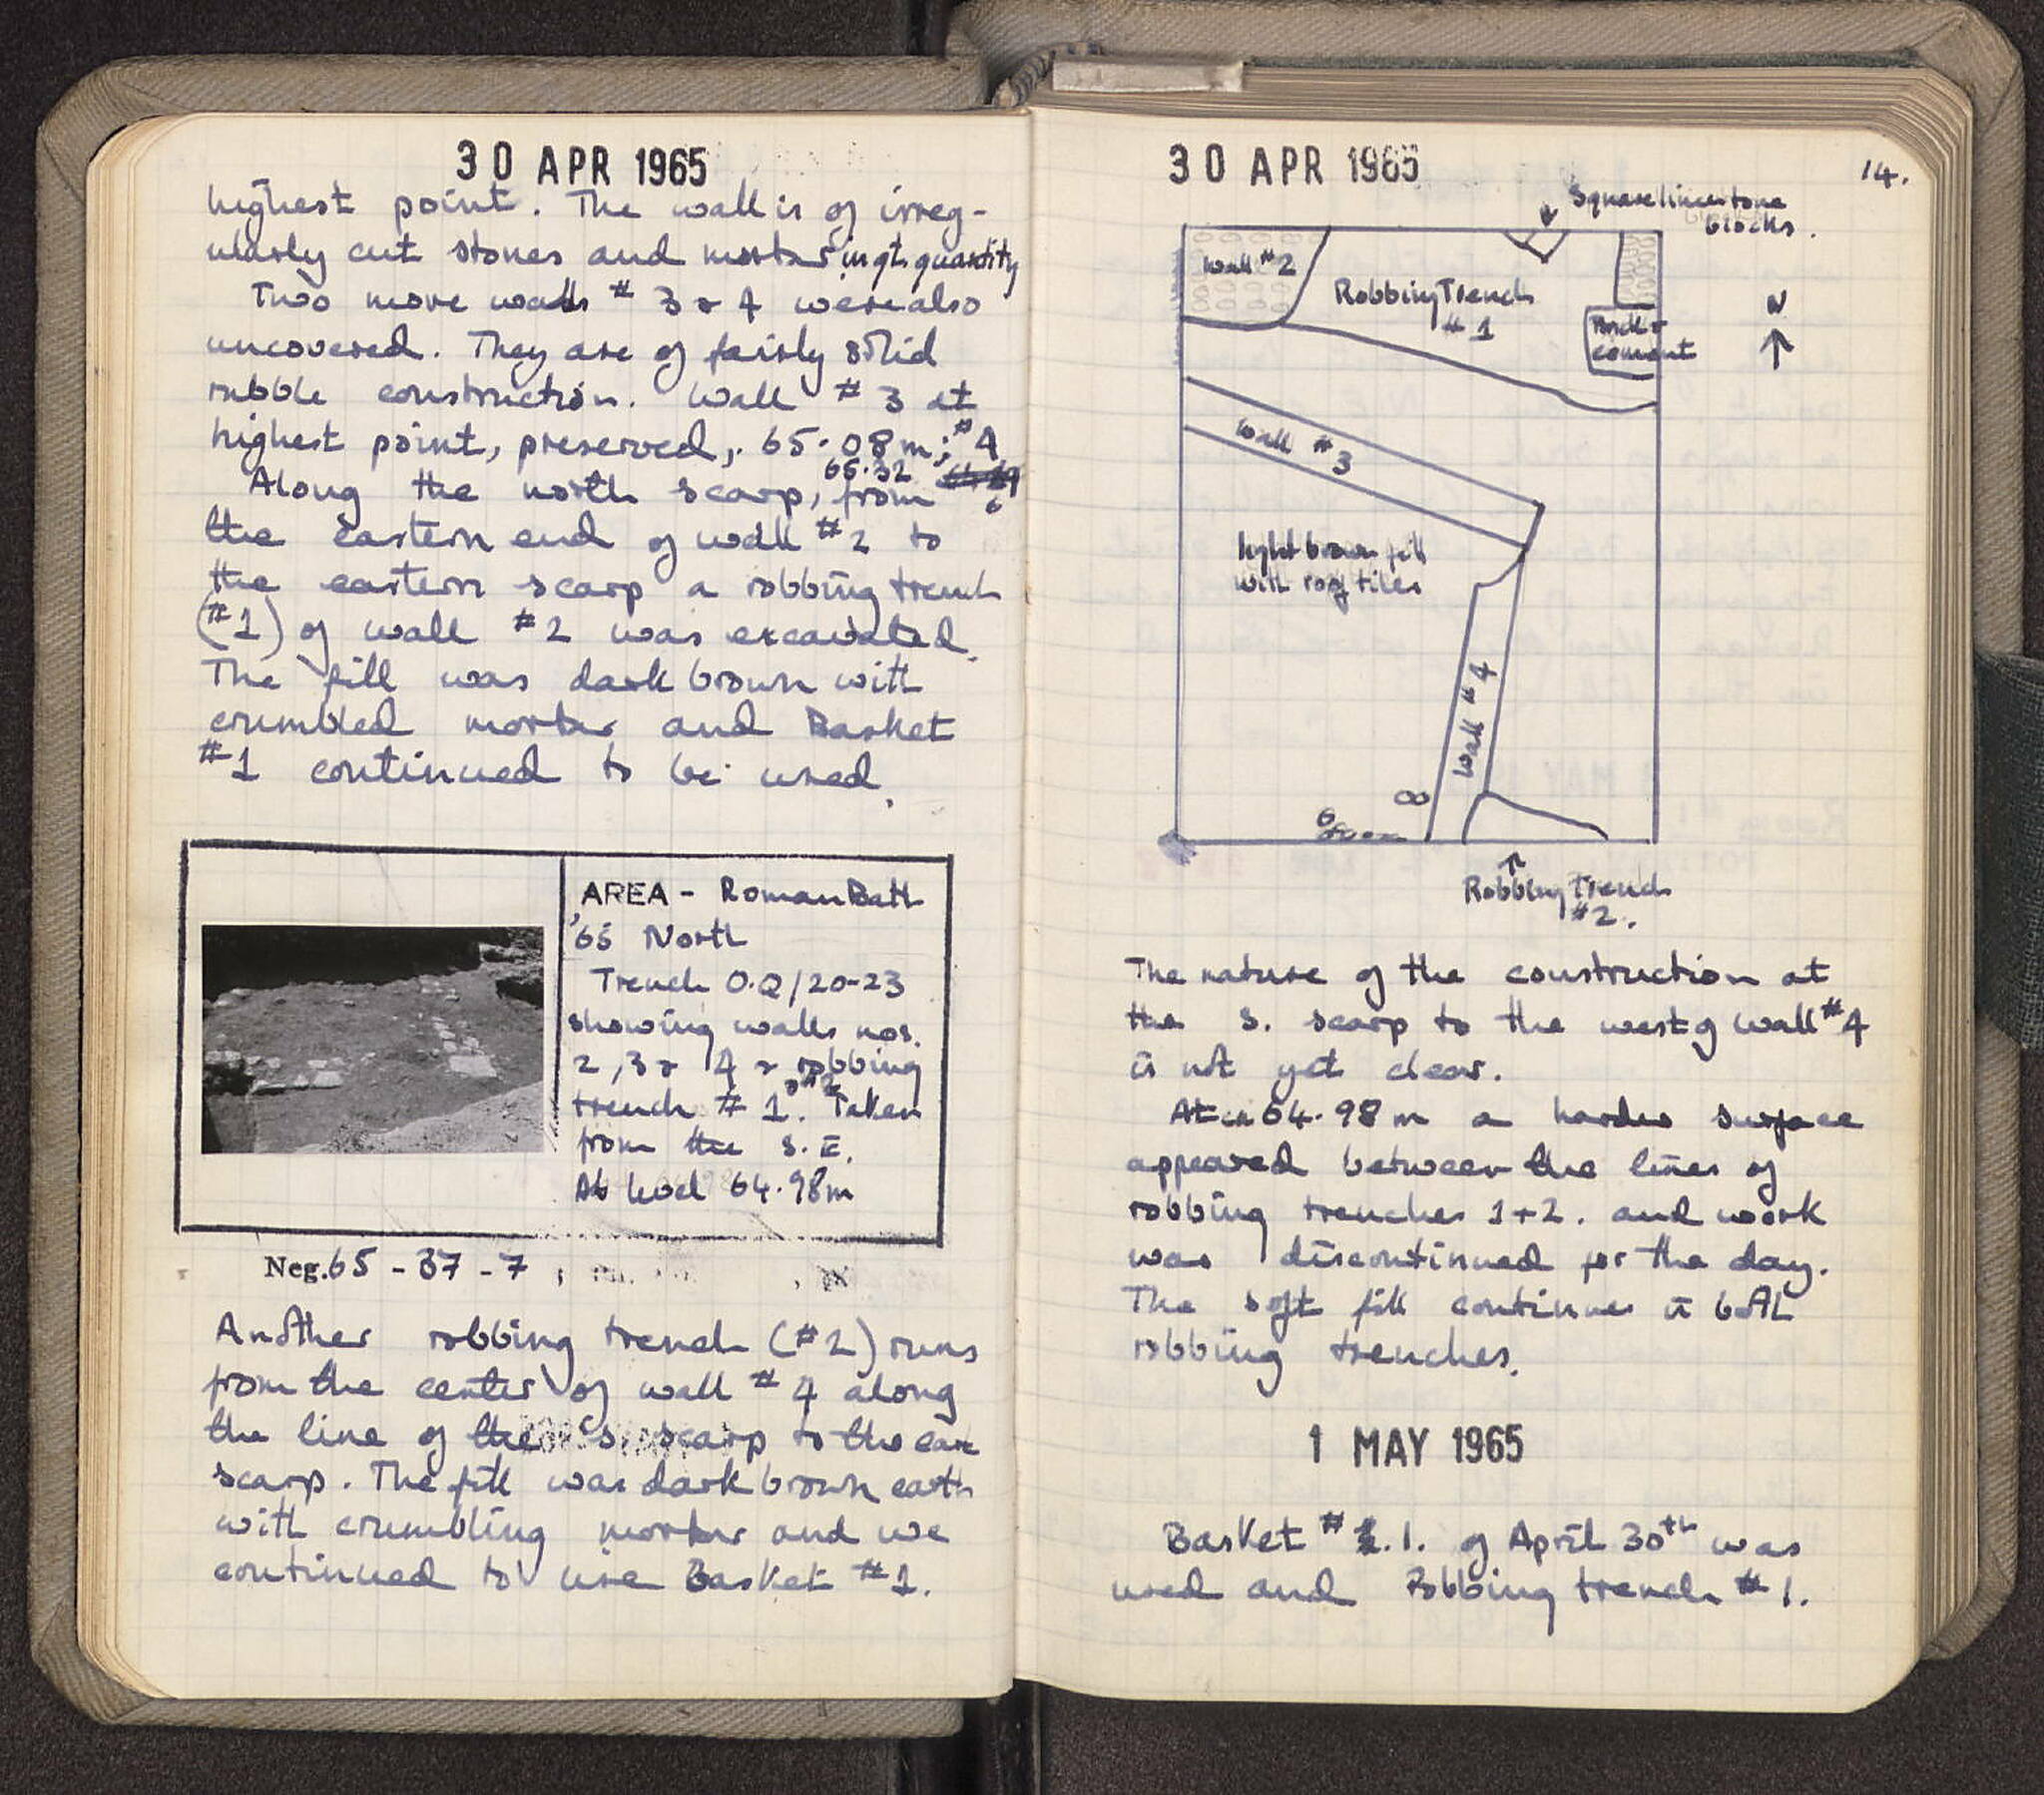 30 APR 1965
highest point. The wall is of irreg-
ularly cut stones and mortar in gt. quantity
Two more walls # 3 & 4 were also
uncovered. They are of fairly solid
rubble construction. Wall # 3 at
highest point, preserved, 65.08m; #4
65.32
Along the north scarp, from
the eastern end of wall #2 to
the eastern scarp a robbing trench
(#1) of wall #2 was excavated.
The fill was dark brown with
crumbled mortar and Basket
#1 continued to be used.
AREA - Roman Bath
'65 North
Trench O.Q/20-23
showing walls nos.
2, 3 & 4 & robbing
trench # 1 & #2. Taken
from the S. E.
At level 64.98m
Neg. 65 - 37 - 7
Another robbing trench (#2) runs
from the center of wall # 4 along
the line of the S. scarp to the
scarp. The fill was dark brown earth
with crumbling mortar and we
continued to use Basket #1.
30 APR 1965
14.
Square limestone
blocks.
Wall #2
Robbing Trench
#1
cement
N
Wall #3
light brown fill
with roof tiles
Wall #4
Robbing Trench
#2.
The nature of the construction at
the S. scarp to the west of wall #4
is not yet clear.
At 64.98m a harder surface
appeared between the lines of
robbing trenches 1+2. and work
was discontinued for the day.
The soft fill continues in both
robbing trenches.
1 MAY 1965
Basket # 1. of April 30th was
used and Robbing trench # 1.